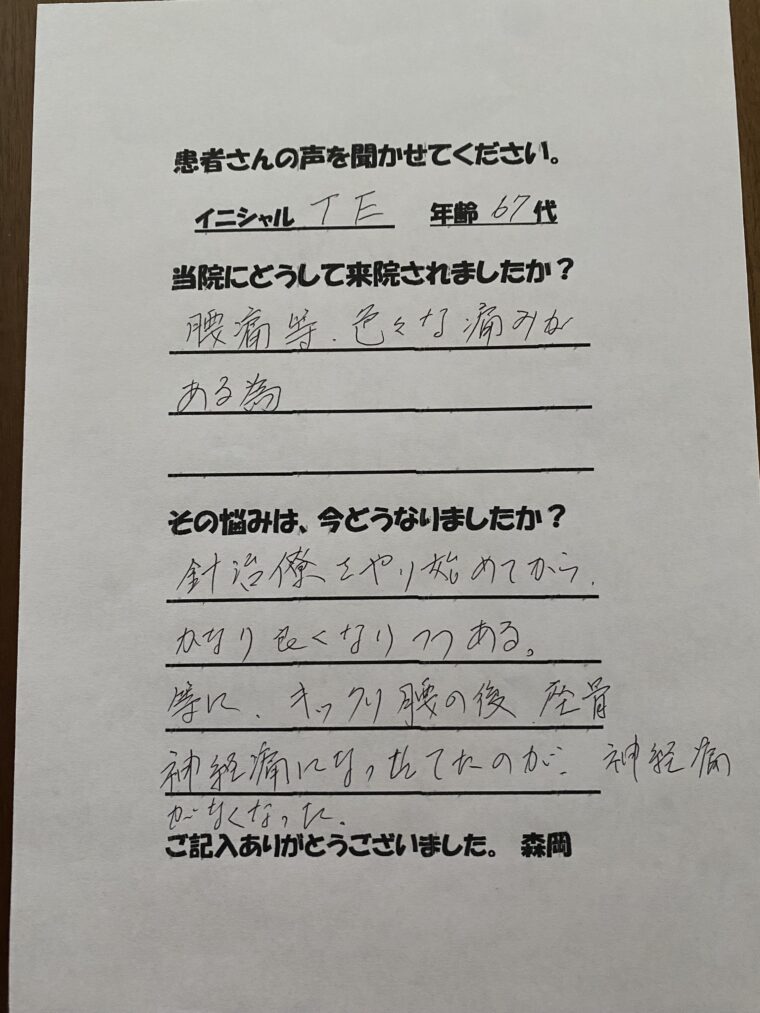 患者さんの声を聞かせてください。
イニシャル TE 年齢 67代
当院にどうして来院されましたか？
腰痛等、色々な痛みが
ある為
その悩みは、今どうなりましたか？
針治僚をやり始めてから、
かなり良くなりつつある。
等に、キックリ腰の後、座骨
神経痛になった
てたのが、神経痛
がなくなった。
ご記入ありがとうございました。 森岡